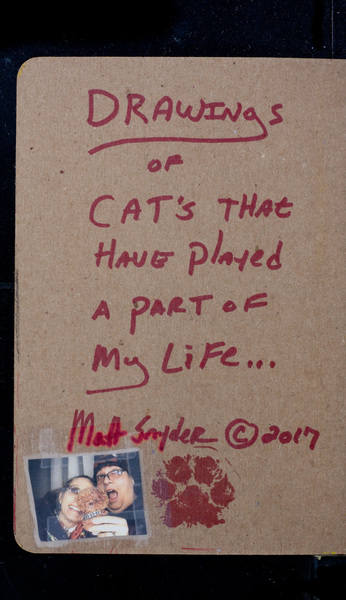 DRAWINGS
OF
CAT'S THAT
HAVE Played
A PART OF
My LiFE...
Matt Snyder © 2017